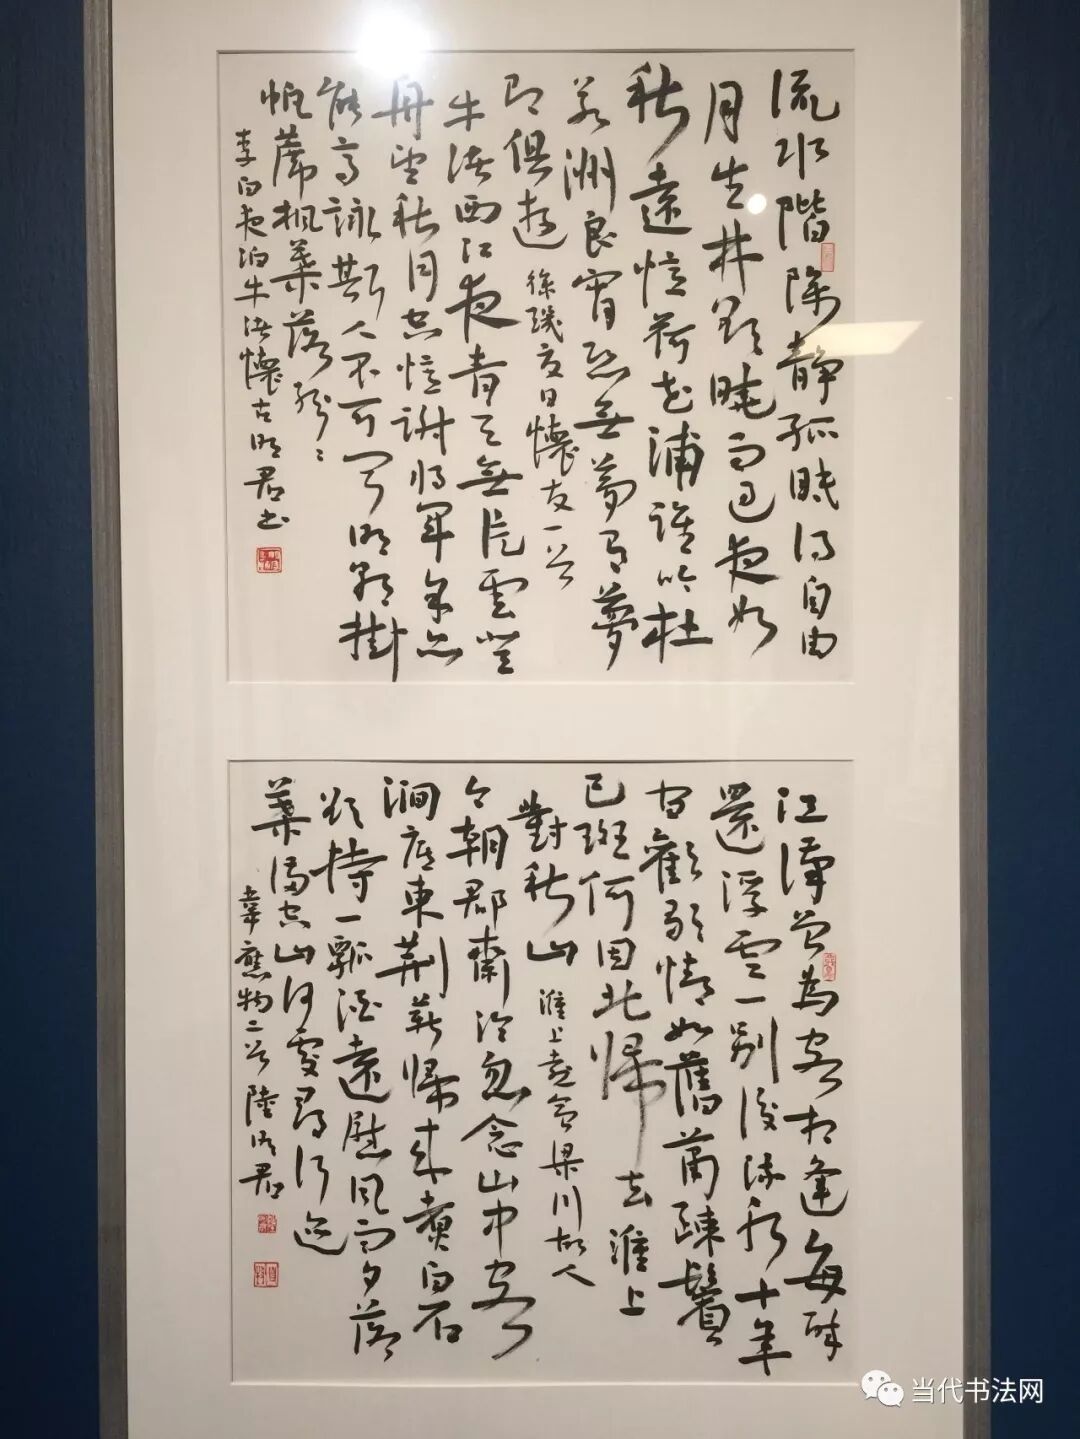 流水階除静孤眠得自由
月生林欲曉雨過夜如
秋遠憶荷花浦誰吟杜
若洲良宵恐無夢有夢
即俱遊 徐璣夏日懷友一首
牛渚西江夜青天無片雲登
舟望秋月空憶謝將軍余亦
能高詠斯人不可聞明朝掛
帆席楓葉落紛々
李白夜泊牛渚懷古明君书
江漢曾為客相逢每醉
還浮雲一別後流水十年
間歡笑情如舊蕭疎鬢
已斑何因北歸去淮上
對秋山 淮上喜會梁川故人
今朝郡齋冷忽念山中客
澗底束荆薪歸來煮白石
欲持一瓢酒遠慰風雨夕落
葉滿空山何處尋行迹
韋應物二首 陸明君
当代书法网